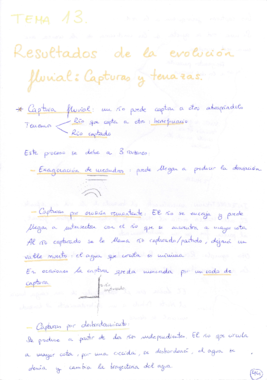 TEMA 13.
Resultados de la evolución
fluvial: Capturas y terrazas.
* Captura fluvial: un río puede captar a otro
Tenemos Río que capta a otro:
Río captado
Este proceso se debe a 3 razones.
- Exageración de meandros: puede llegar a producir la
- Captura por erosión remontante: El río se encaja y puede
llegar a con el río que se encuentra a mayor cota
Al río capturado se le llama río capturado/ , dejará un
valle muerto: el agua que circula es mínima.
En ocasiones la captura queda marcada por un codo de
captura.
- Captura por derramamiento:
Se produce a partir de dos ríos independientes El río que circula
a mayor cota, por una crecida, se desbordará, el agua se
y cambia la trayectoria del agua